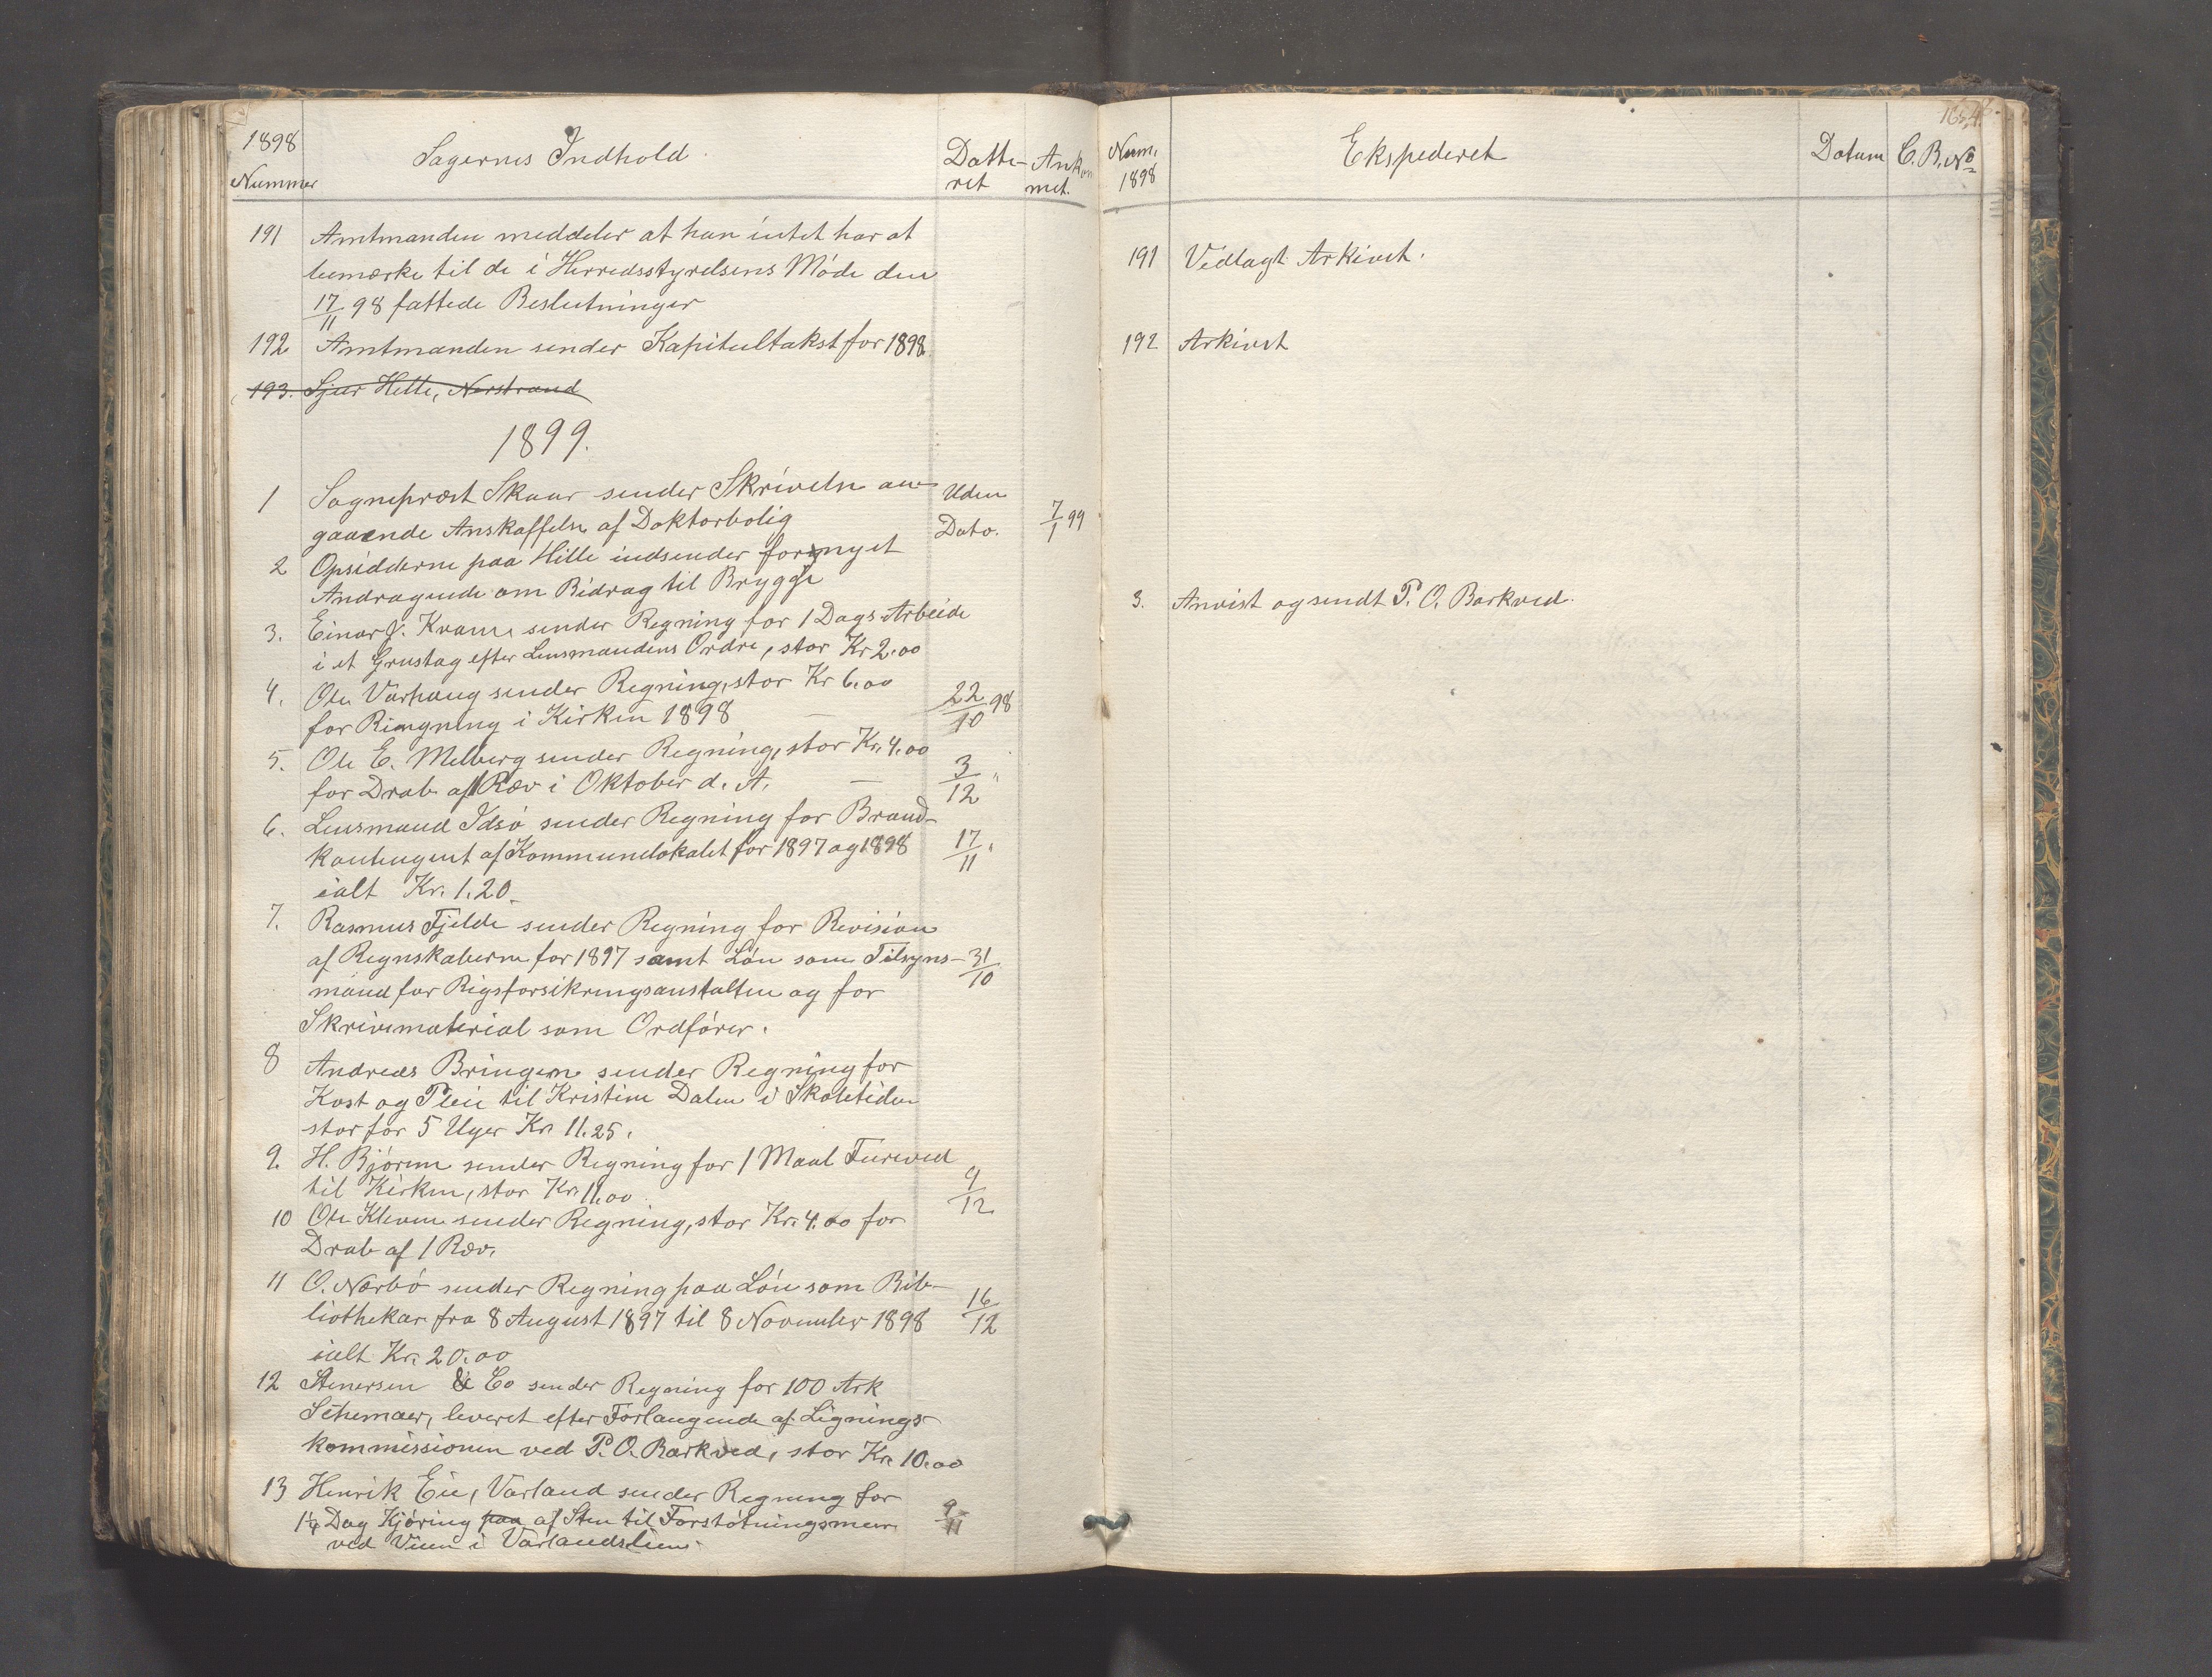 1898
Nummer
Sagernes Indhold.
Datte-
ret
Ankom
met.
191 Amtmanden meddeler at han intet har at
bemærke til de i Herredsstyrelsens Møde den
17/11 98 fattede Beslutninger
192 Amtmanden sender Kapiteltakst for 1898.
193. Sjur Hette, Nerstrand
1899.
1 Sogneprest Skaar sender Skrivelse an- Uden
gaaende Anskaffelse af Doktorbolig Dato. 7/1 99
2 Opsidderne paa Hille indsender fornyet
Andragende om Bidrag til Brygge
3. Einar J. Kvame sender Regning for 1 Dags Arbeide
i et Grustag efter Lensmandens Ordre, stor Kr 2.00
4. Ole Varhaug sender Regning, stor Kr 6.00
for Ringning i Kirken 1898 — 22/10 98
5. Ole E. Melberg sender Regning, stor Kr. 4.00
for Drab af 1 Ræv i Oktober d. A. — 3/12 "
6. Lensmand Idsø sender Regning for Brand-
kontingent af Kommunelokalet for 1897 og 1898 17/11 "
ialt Kr. 1.20.
7. Rasmus Fjelde sender Regning for Revision
af Regnskaberne for 1897 samt Løn som Tilsyns- 31/10
mand for Rigsforsikringsanstalten og for
Skrivematerial som Ordfører.
8 Andreas Bringen sender Regning for
Kost og Pleie til Kristine Dalen i Skoletiden
stor for 5 Uger Kr. 11.25.
9. H. Bjøren sender Regning for 1 Maal Fureved
til Kirken, stor Kr. 11.00. 9/12
10 Ole Kleven sender Regning, stor Kr. 4.00 for
Drab af 1 Ræv.
11 O. Nærbø sender Regning paa Løn som Bib-
liothekar fra 8 August 1897 til 8 November 1898 16/12
ialt Kr. 20.00
12 Stenersen & Co sender Regning for 100 Ark
Schemaer, leveret efter Forlangende af Lignings-
kommissionen ved P. O. Barkved, stor Kr. 10.00
13 Henrik Eie, Varland sender Regning for
1¼ Dag Kjøring paa af Sten til Forstøtningsmur 9/11
ved Veien i Varlandslien.
164.
Num.
1898
Ekspederet
Datum
C. B. No
191 Vedlagt Arkivet.
192 Arkivet
3. Anvist og sendt P. O. Barkved.